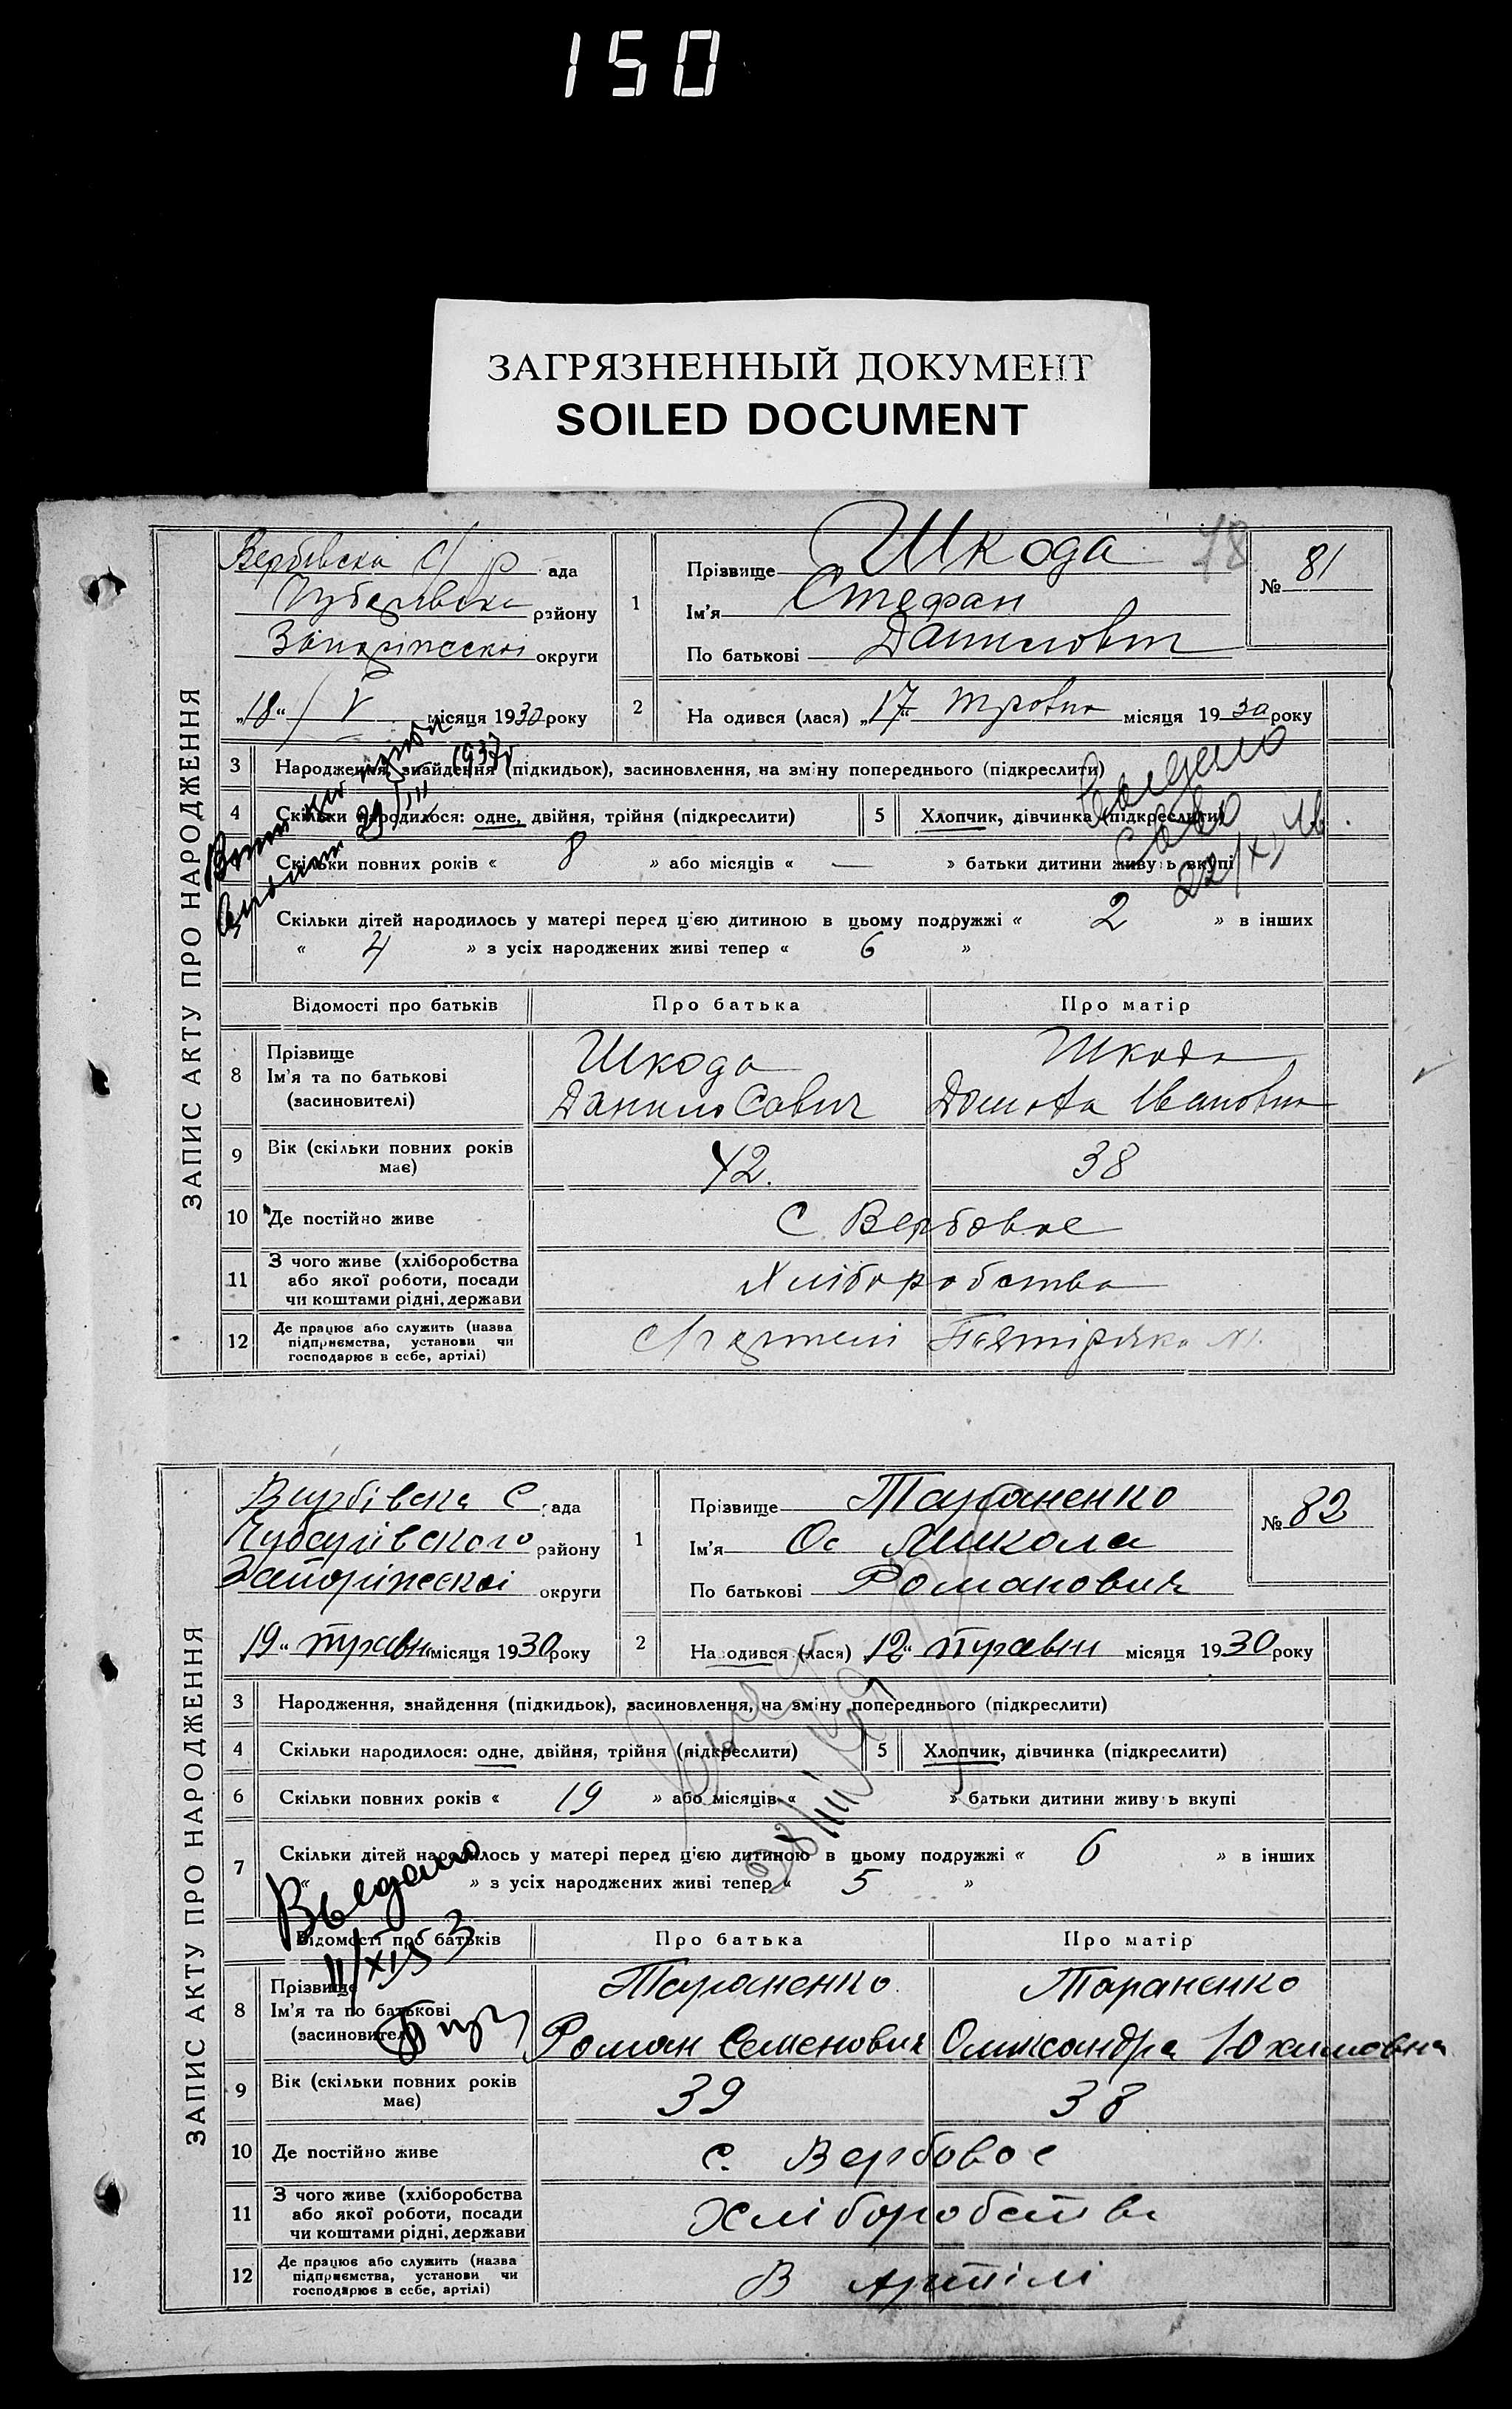 150
ЗАГРЯЗНЕННЫЙ ДОКУМЕНТ
SOILED DOCUMENT
18
ЗАПИС АКТУ ПРО НАРОДЖЕННЯ
Вербівска С/р ада
району
Запоріжскої округи
„18“ / V місяця 1930 року
1 Прізвище Шкода
Ім'я Стефан
По батькові Данилович
№ 81
2 На одився (лася) „17“ травня місяця 1930 року
3 Народження, знайдення (підкидьок), засиновлення, на зміну попереднього (підкреслити)
4 Скільки народилося: одне, двійня, трійня (підкреслити) 5 Хлопчик, дівчинка (підкреслити)
Скільки повних років « 8 » або місяців « — » батьки дитини живуть вкупі
Скільки дітей народилось у матері перед ц'єю дитиною в цьому подружжі « 2 » в інших
« 4 » з усіх народжених живі тепер « 6 »
1937
22/XI
Відомості про батьків Про батька Про матір
8 Прізвище Шкода Шкода
Ім'я та по батькові Данило Савич Івановна
(засиновителі)
9 Вік (скільки повних років має) 42. 38
10 Де постійно живе С. Вербовое
11 З чого живе (хліборобства або якої роботи, посади чи коштами рідні, держави Хліборобства
12 Де працює або служить (назва підприємства, установи чи господарює в себе, артілі)
ЗАПИС АКТУ ПРО НАРОДЖЕННЯ
Вербівска С. ада
Чубарівского району
Запоріжскої округи
19“ травня місяця 1930 року
1 Прізвище Тараненко
Ім'я Микола
По батькові Романович
№ 82
2 На одився (лася) 12“ травня місяця 1930 року
3 Народження, знайдення (підкидьок), засиновлення, на зміну попереднього (підкреслити)
4 Скільки народилося: одне, двійня, трійня (підкреслити) 5 Хлопчик, дівчинка (підкреслити)
6 Скільки повних років « 19 » або місяців « » батьки дитини живуть вкупі
7 Скільки дітей народилось у матері перед ц'єю дитиною в цьому подружжі « 6 » в інших
« » з усіх народжених живі тепер « 5 »
Выдано
11/XI 53
Відомості про батьків Про батька Про матір
8 Прізвище Тараненко Тараненко
Ім'я та по батькові Роман Семенович Олександра Юхимовна
(засиновителі)
9 Вік (скільки повних років має) 39 38
10 Де постійно живе с. Вербовое
11 З чого живе (хліборобства або якої роботи, посади чи коштами рідні, держави Хліборобства
12 Де працює або служить (назва підприємства, установи чи господарює в себе, артілі) В Артілі